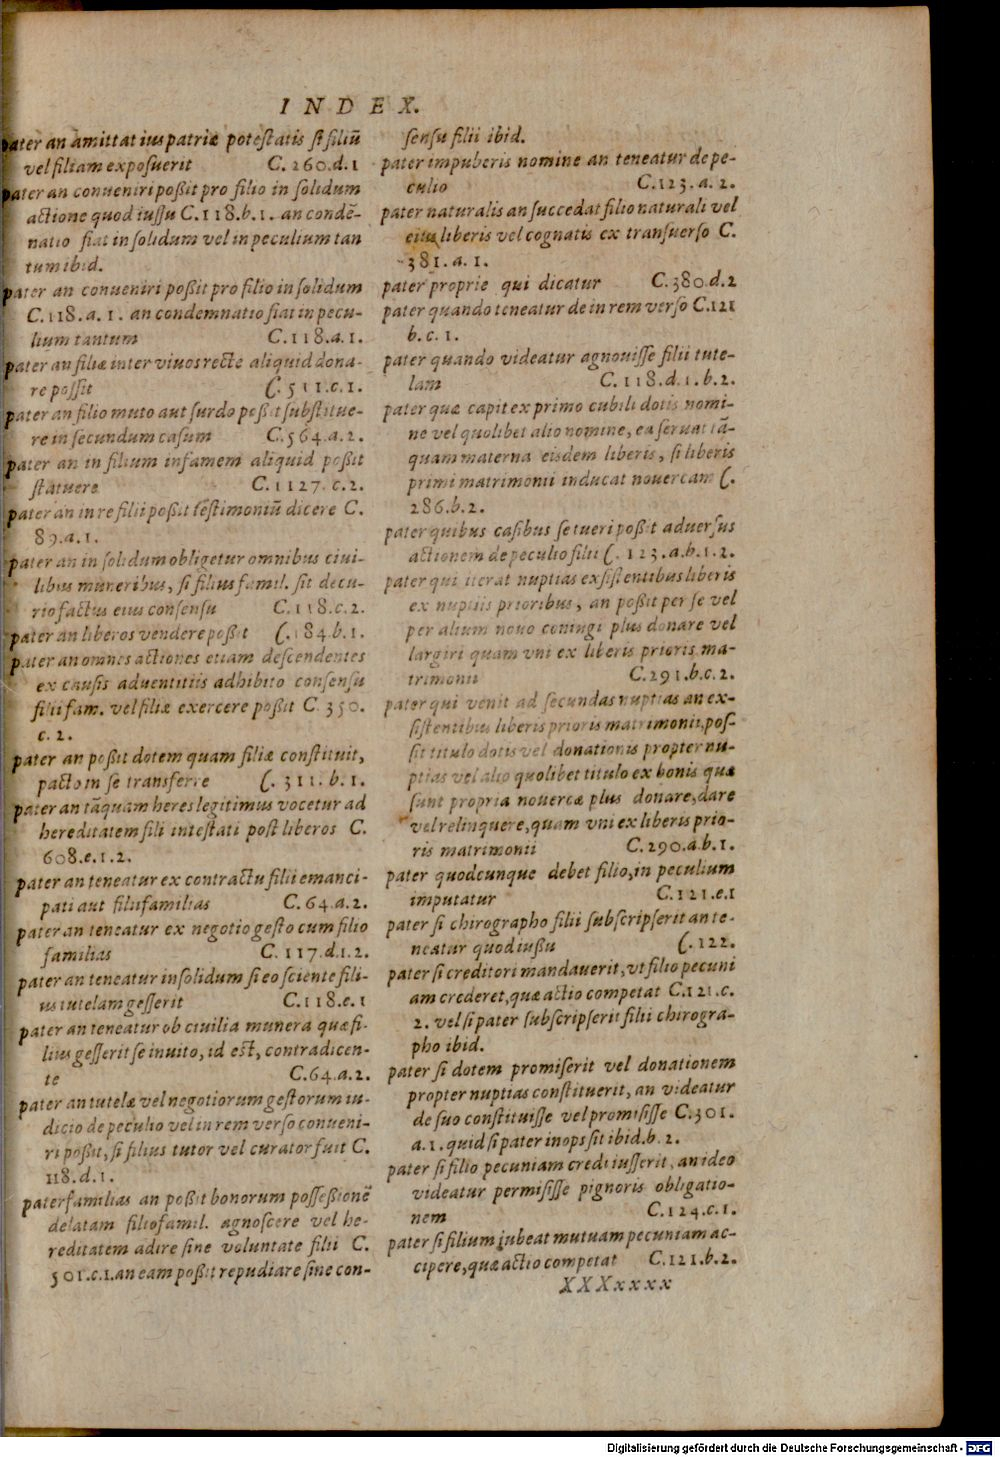 INDEX.
pater an amittat ius patriæ potestatis si filiū
vel filiam exposuerit C. 260.d.1
pater an conueniri poßit pro filio in solidum
actione quod iussu C.118.b.1. an condē-
natio fiat in solidum vel in peculium tan
tum ibid.
pater an conueniri poßit pro filio in solidum
C.118.a.1. an condemnatio fiat in pecu-
lium tantum C.118.a.1.
pater an filiæ inter viuos recte aliquid dona-
re possit C.511.c.1.
pater an filio muto aut surdo poßit substitue-
re in secundum casum C.564.a.2.
pater an in filium infamem aliquid poßit
statuere C.1127.c.2.
pater an in re filii poßit testimoniū dicere C.
89.a.1.
pater an in solidum obligetur omnibus ciui-
libus muneribus, si filius famil. sit decu-
rio factus eius consensu C.118.c.2.
pater an liberos vendere poßit C.184.b.1.
pater an omnes actiones etiam descendentes
ex causis aduentitiis adhibito consensu
filii fam. vel filiæ exercere poßit C.350.
c.2.
pater an poßit dotem quam filiæ constituit,
pacto in se transferre C.311.b.1.
pater an tāquam heres legitimus vocetur ad
hereditatem fili intestati post liberos C.
608.e.1.2.
pater an teneatur ex contractu filii emanci-
pati aut filiifamilias C.64.a.2.
pater an teneatur ex negotio gesto cum filio
familias C.117.d.1.2.
pater an teneatur in solidum si eo sciente fili-
us tutelam gesserit C.118.e.1
pater an teneatur ob ciuilia munera quæ fi-
lius gesserit se inuito, id est, contradicen-
te C.64.a.2.
pater an tutelæ vel negotiorum gestorum iu-
dicio de peculio vel in rem verso conueni-
ri poßit, si filius tutor vel curator fuit C.
118.d.1.
paterfamilias an poßit bonorum posseßionē
delatam filiofamil. agnoscere vel he-
reditatem adire sine voluntate filii C.
501.c.1. an eam poßit repudiare sine con-
sensu filii ibid.
pater impuberis nomine an teneatur de pe-
culio C.123.a.2.
pater naturalis an succedat filio naturali vel
eius liberis vel cognatis ex transuerso C.
381.a.1.
pater proprie qui dicatur C.380.d.2
pater quando teneatur de in rem verso C.121
b.c.1.
pater quando videatur agnouisse filii tute-
lam C.118.d.1.b.2.
pater quæ capit ex primo cubili dotis nomi-
ne vel quolibet alio nomine, ea seruat tā-
quam materna eisdem liberis, si liberis
primi matrimonii inducat nouercam C.
286.b.2.
pater quibus casibus se tueri poßit aduersus
actionem de peculio filii C.123.a.b.1.2.
pater qui iterat nuptias exsistentibus liberis
ex nuptiis prioribus, an poßit per se vel
per alium nouo coniugi plus donare vel
largiri quam vni ex liberis prioris ma-
trimonii C.291.b.c.2.
pater qui venit ad secundas nuptias an ex-
sistentibus liberis prioris matrimonii, pos-
sit titulo dotis vel donationis propter nu-
ptias vel alio quolibet titulo ex bonis quæ
sunt propria nouercæ plus donare, dare
vel relinquere, quam vni ex liberis prio-
ris matrimonii C.290.a.b.1.
pater quodcunque debet filio, in peculium
imputatur C.121.e.1
pater si chirographo filii subscripserit an te-
neatur quod iussu C.122.
pater si creditori mandauerit, vt filio pecuni
am crederet, quæ actio competat C.121.c.
2. vel si pater subscripserit filii chirogra-
pho ibid.
pater si dotem promiserit vel donationem
propter nuptias constituerit, an videatur
de suo constituisse vel promisisse C.301.
a.1. quid si pater inops sit ibid.b.2.
pater si filio pecuniam credi iusserit, an ideo
videatur permisisse pignoris obligatio-
nem C.124.c.1.
pater si filium iubeat mutuam pecuniam ac-
cipere, quæ actio competat C.121.b.2.
XXXxxxx
Digitalisierung gefördert durch die Deutsche Forschungsgemeinschaft - DFG